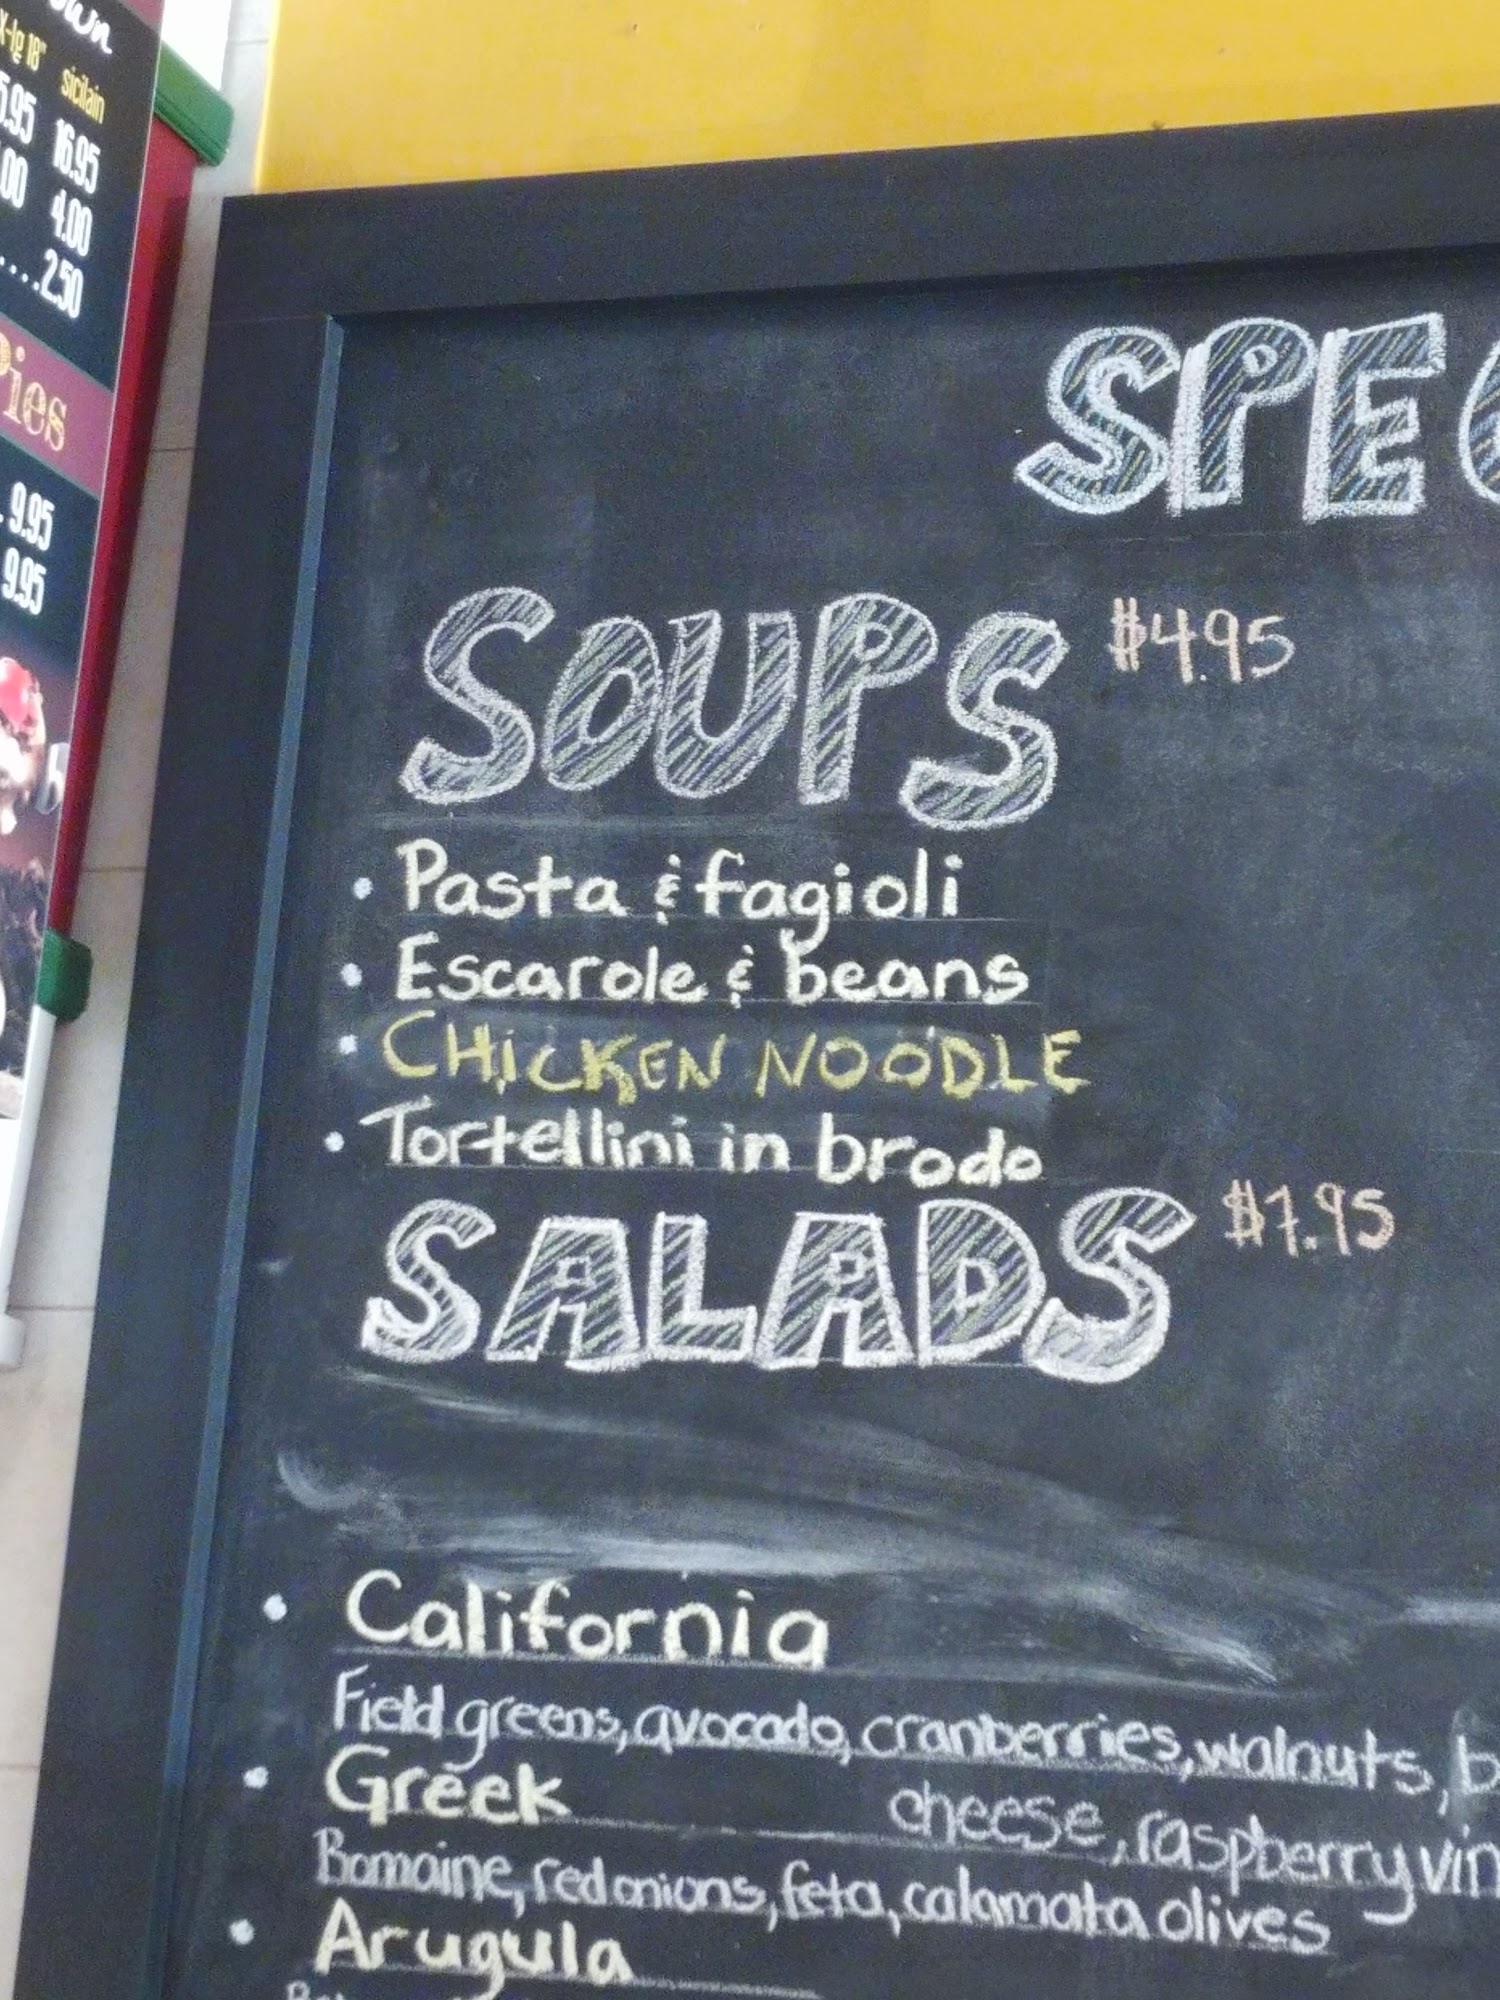 own
X-lg 18" sicilain
5.95 16.95
.00 4.00
....2.50
Pies
. 9.95
9.95
SPEC
SOUPS $4.95
• Pasta & fagioli
• Escarole & beans
• CHiCKEN NOODLE
• Tortellini in brodo
SALADS $7.95
• California
Field greens, avocado, cranberries, walnuts, b
cheese, raspberry vin
• Greek
Romaine, red onions, feta, calamata olives
• Arugula